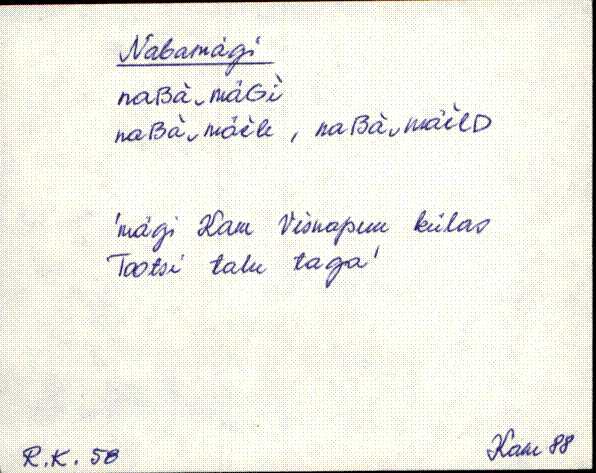 Nabamägi
naBà‿mäGì
naBà‿mäèle, naBà‿mäèlD
'mägi Kam Visnapuu külas
Tootsi talu taga'
R.K. 58
Kam 88